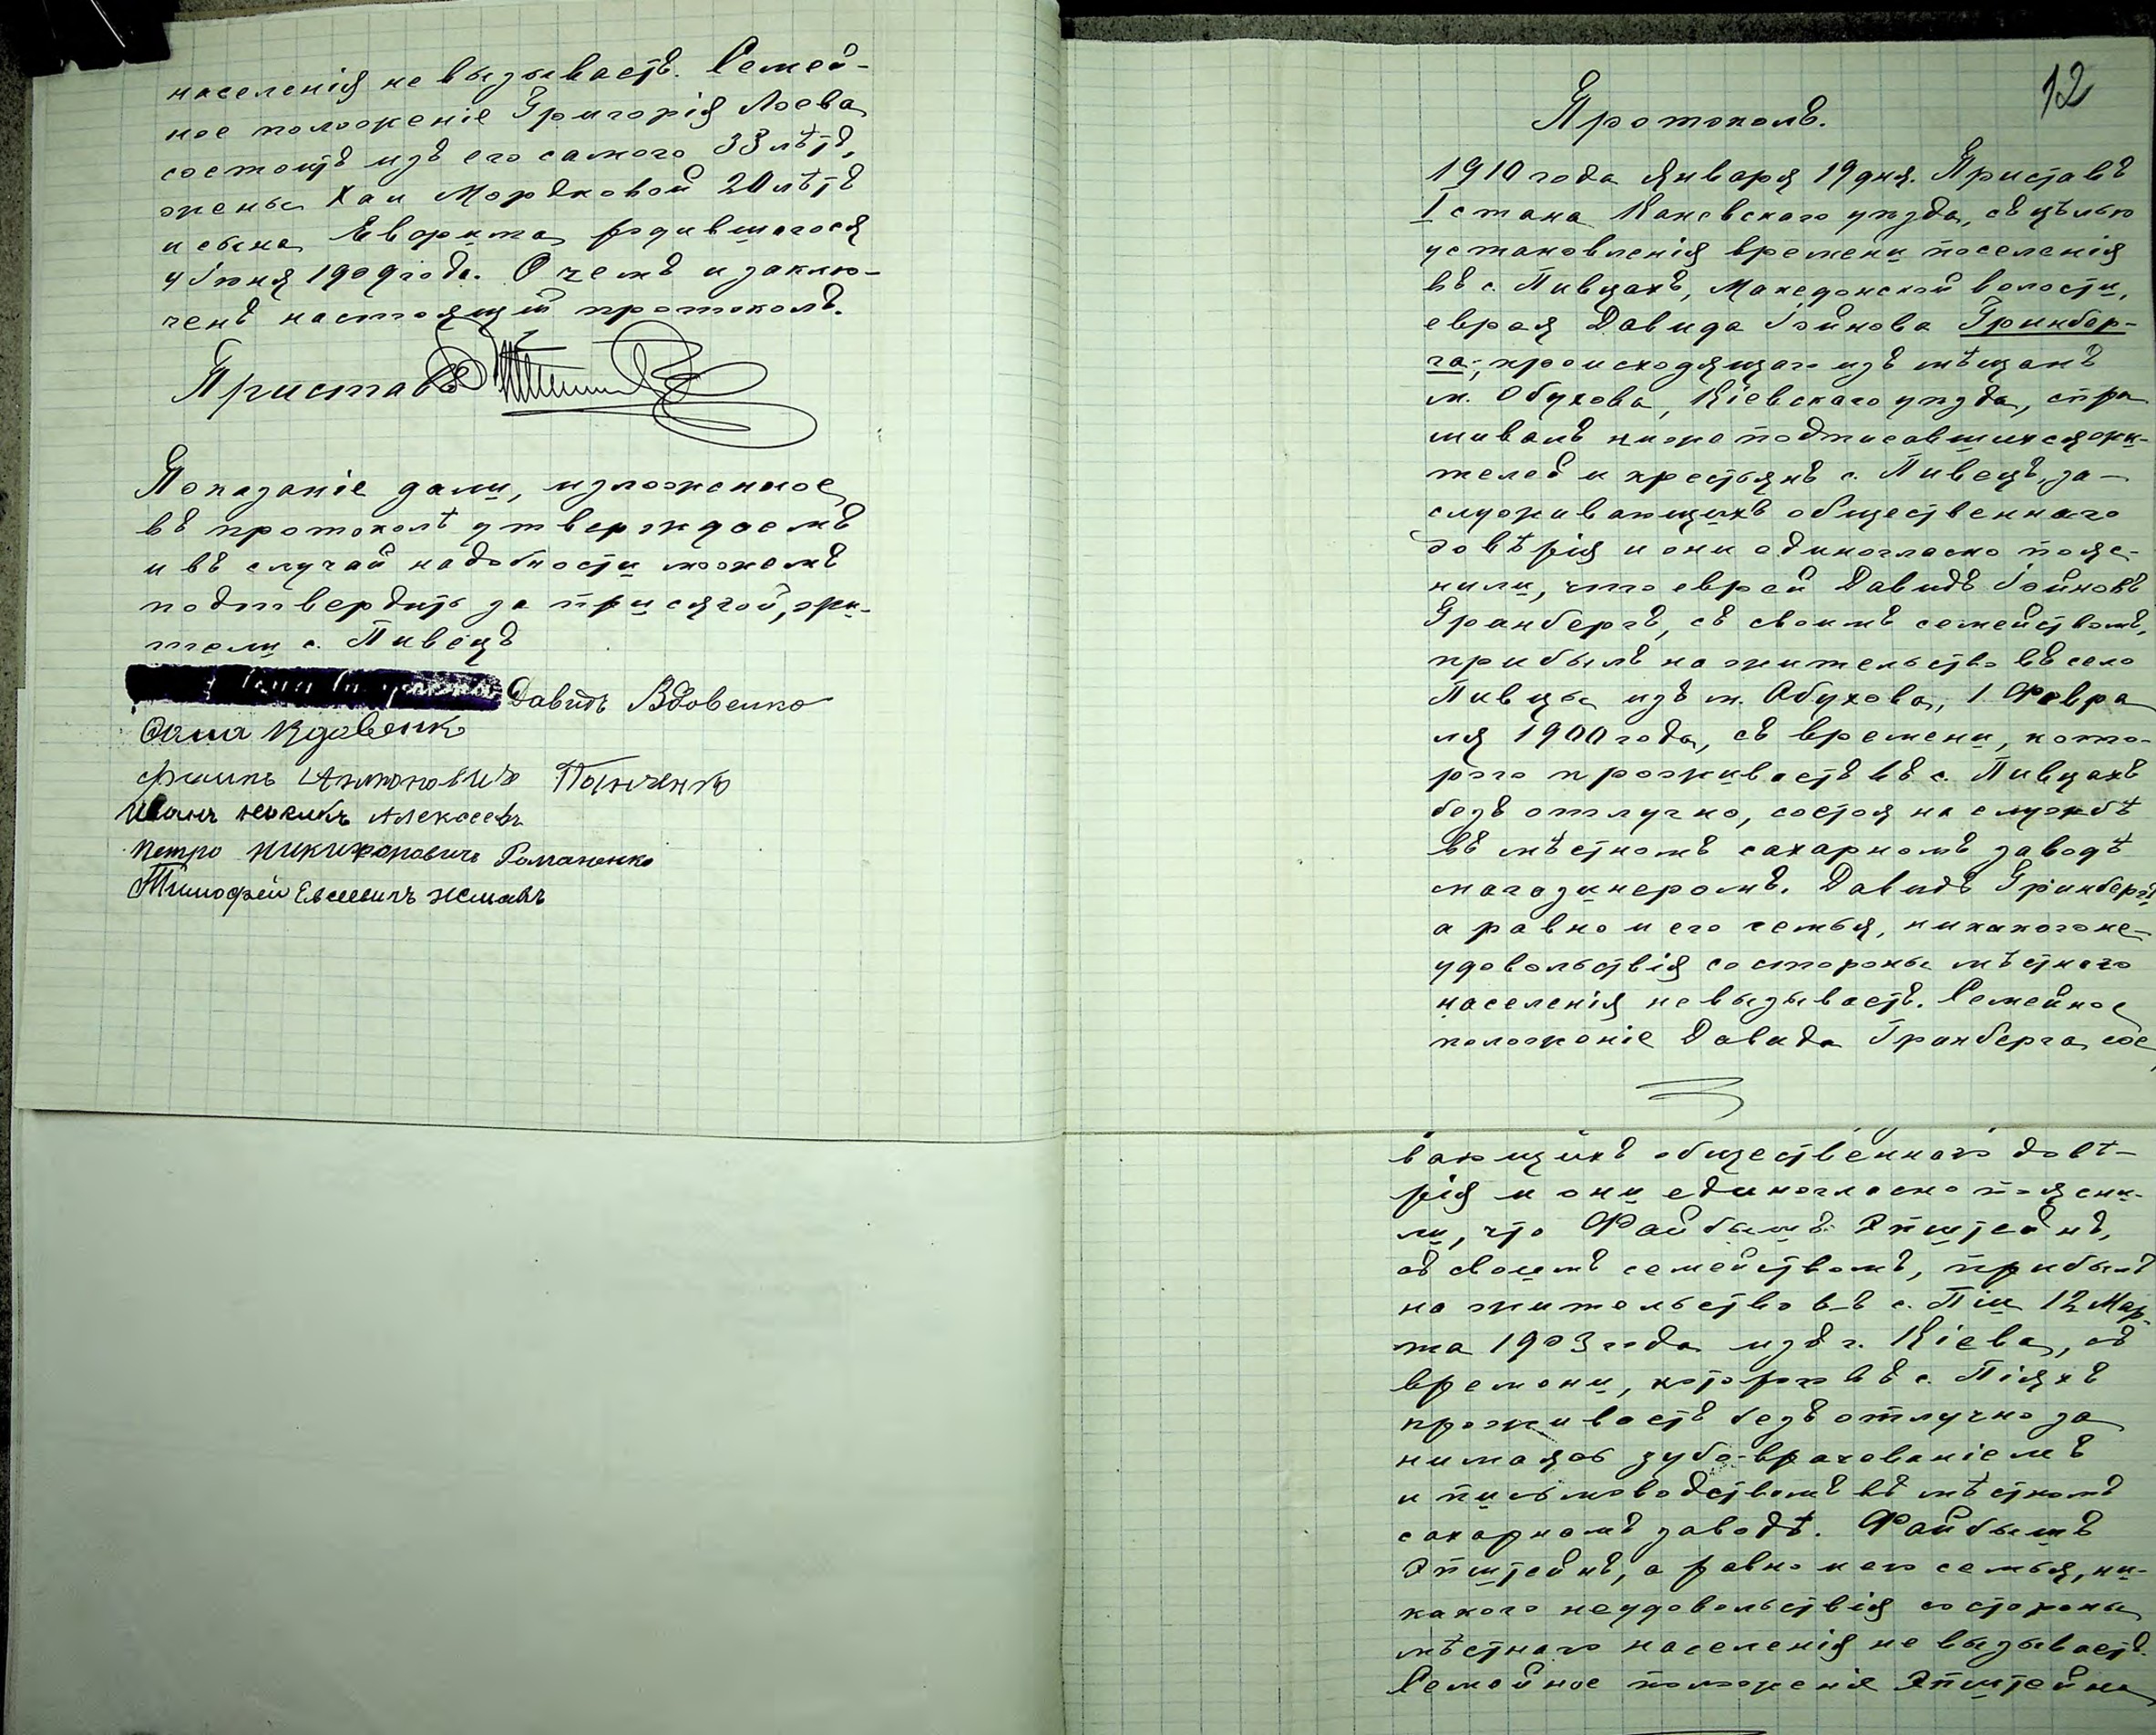 населенія не вызываетъ. Семей-
ное положеніе Григорія Лоева
состоитъ изъ его самого 33 лѣтъ,
жены Хаи Мордковой 20 лѣтъ
и сына родившагося
4 Іюня 1909 года. О чемъ и заклю-
ченъ настоящій протоколъ.
Приставъ
Показаніе дали, изложенное
въ протоколѣ утверждаемъ
и въ случаи надобности можемъ
подтвердить за присягой, жи-
тели с. Пивецъ
Давидъ Вдовенко
Вдовенко
Антоновичъ
Иванъ Алексеевъ
Петро Никихоровичъ Романенко
Тимофей Евсеевичъ
12
Протоколъ.
1910 года Января 19 дня. Приставъ
I стана Каневскаго уѣзда, съ цѣлью
установленія времени поселенія
въ с. Пивцахъ, Македонской волости,
еврея Давида Гринбер-
га, происходящаго изъ мѣщанъ
м. Обухова, Кіевскаго уѣзда, спра
шивалъ нижеподписавшихся жи-
телей и крестьянъ с. Пивецъ, за-
служивающихъ общественнаго
довѣрія и они единогласно пояс-
нили, что еврей Давидъ
Гринбергъ, съ своимъ семействомъ,
прибылъ на жительство въ село
Пивцы изъ м. Обухова, 1 Февра
ля 1900 года, съ времени, кото-
раго проживаетъ въ с. Пивцахъ
безъ отлучно, состоя на службѣ
въ мѣстномъ сахарномъ заводѣ
магазинеромъ. Давидъ Гринбергъ
а равно и его семья, никакого не-
удовольствія со стороны мѣстнаго
населенія не вызываетъ. Семейное
положеніе Давида Гринберга сос
вающихъ общественнаго довѣ-
рія и они единогласно поясни-
ли, что Файбышъ Эпштейнъ,
съ своимъ семействомъ, прибылъ
на жительство въ с. Піи 12 Мар-
та 1903 года изъ г. Кіева, съ
времени, котораго въ с. Піяхъ
проживаетъ безъ отлучно за
нимаясь зубо-врачеваніемъ
и письмоводствомъ въ мѣстномъ
сахарномъ заводѣ. Файбышъ
Эпштейнъ, а равно и его семья, ни-
какого неудовольствія со стороны
мѣстнаго населенія не вызываетъ.
Семейное положеніе Эпштейна